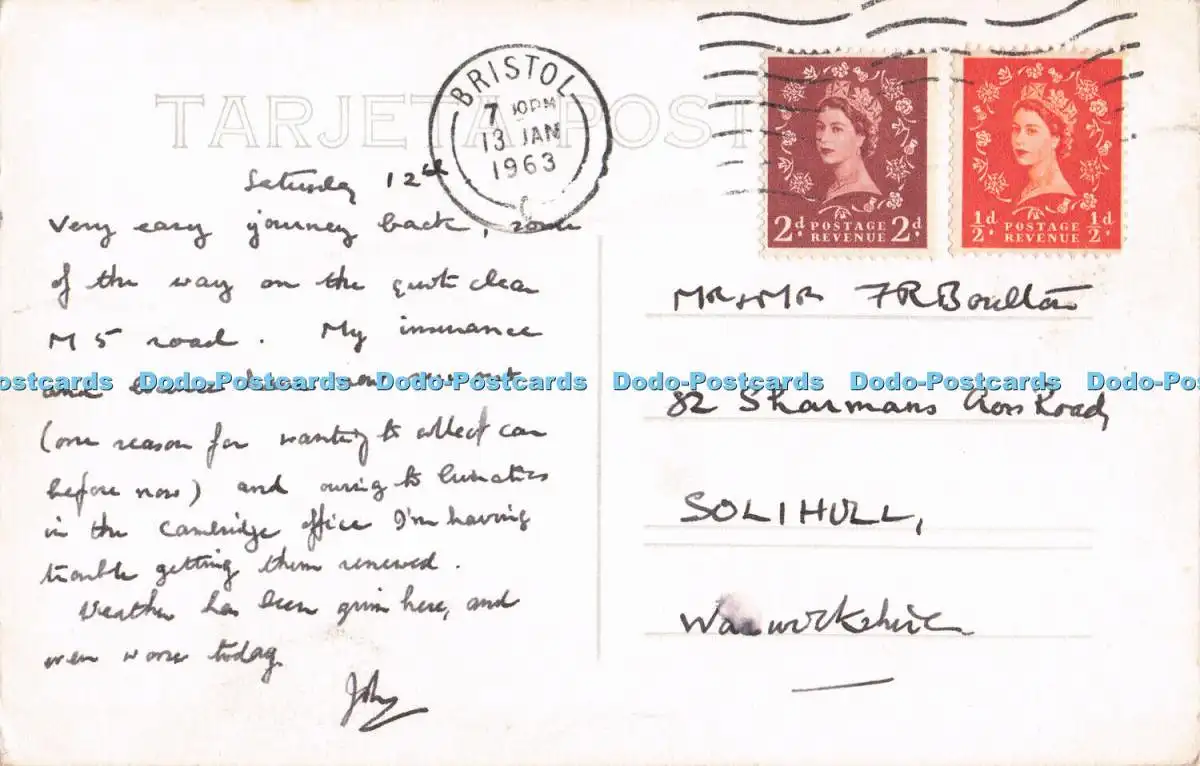 TARJETA POST
BRISTOL
7 30PM
13 JAN
1963
2d POSTAGE REVENUE 2d
½d POSTAGE REVENUE ½d
Saturday 12th
Very easy journey back, some
of the way on the quite clear
M5 road. My insurance
and licence have now run out
(one reason for wanting to collect car
before now) and owing to lunatics
in the Cambridge office I'm having
trouble getting them renewed.
Weather has been grim here, and
even worse today.
John
Mr & Mrs F R Boulton
82 Sharmans Cross Road,
SOLIHULL,
Warwickshire
Dodo-Postcards Dodo-Postcards Dodo-Postcards Dodo-Postcards Dodo-Postcards